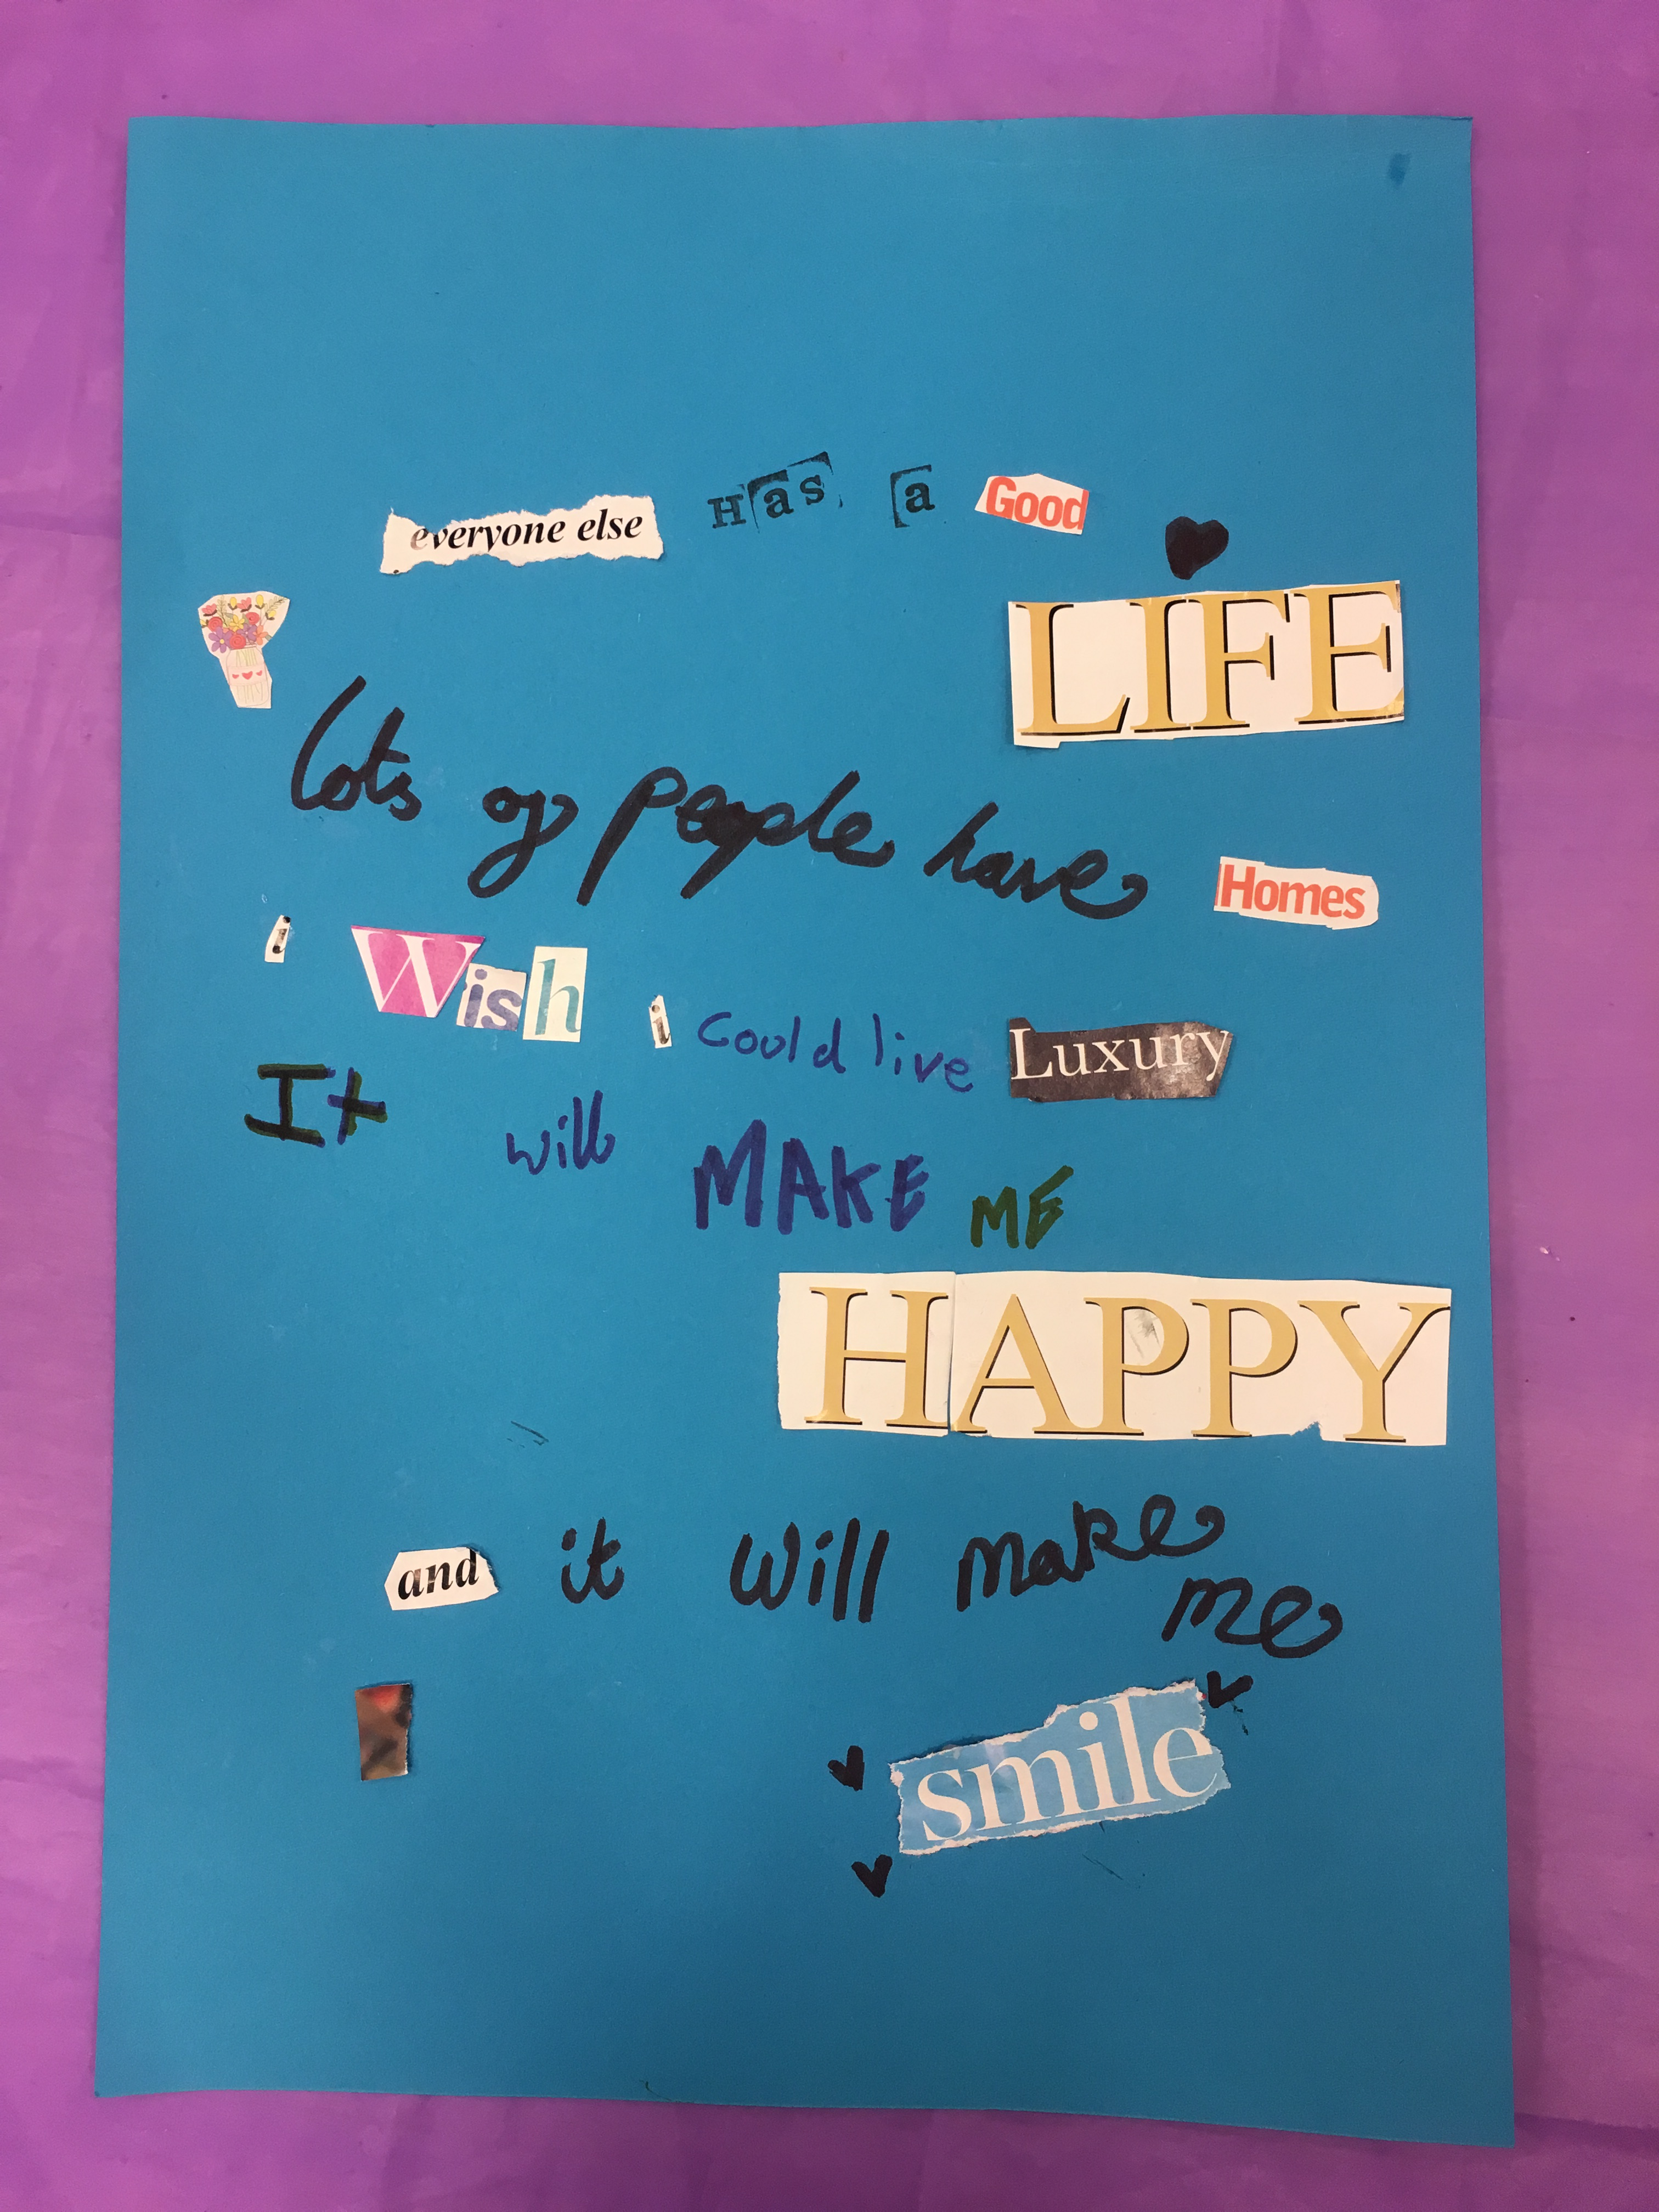 everyone else Has a Good
LIFE
lots of people have Homes
i Wish i could live Luxury
It will MAKE ME
HAPPY
and it will make
me
smile